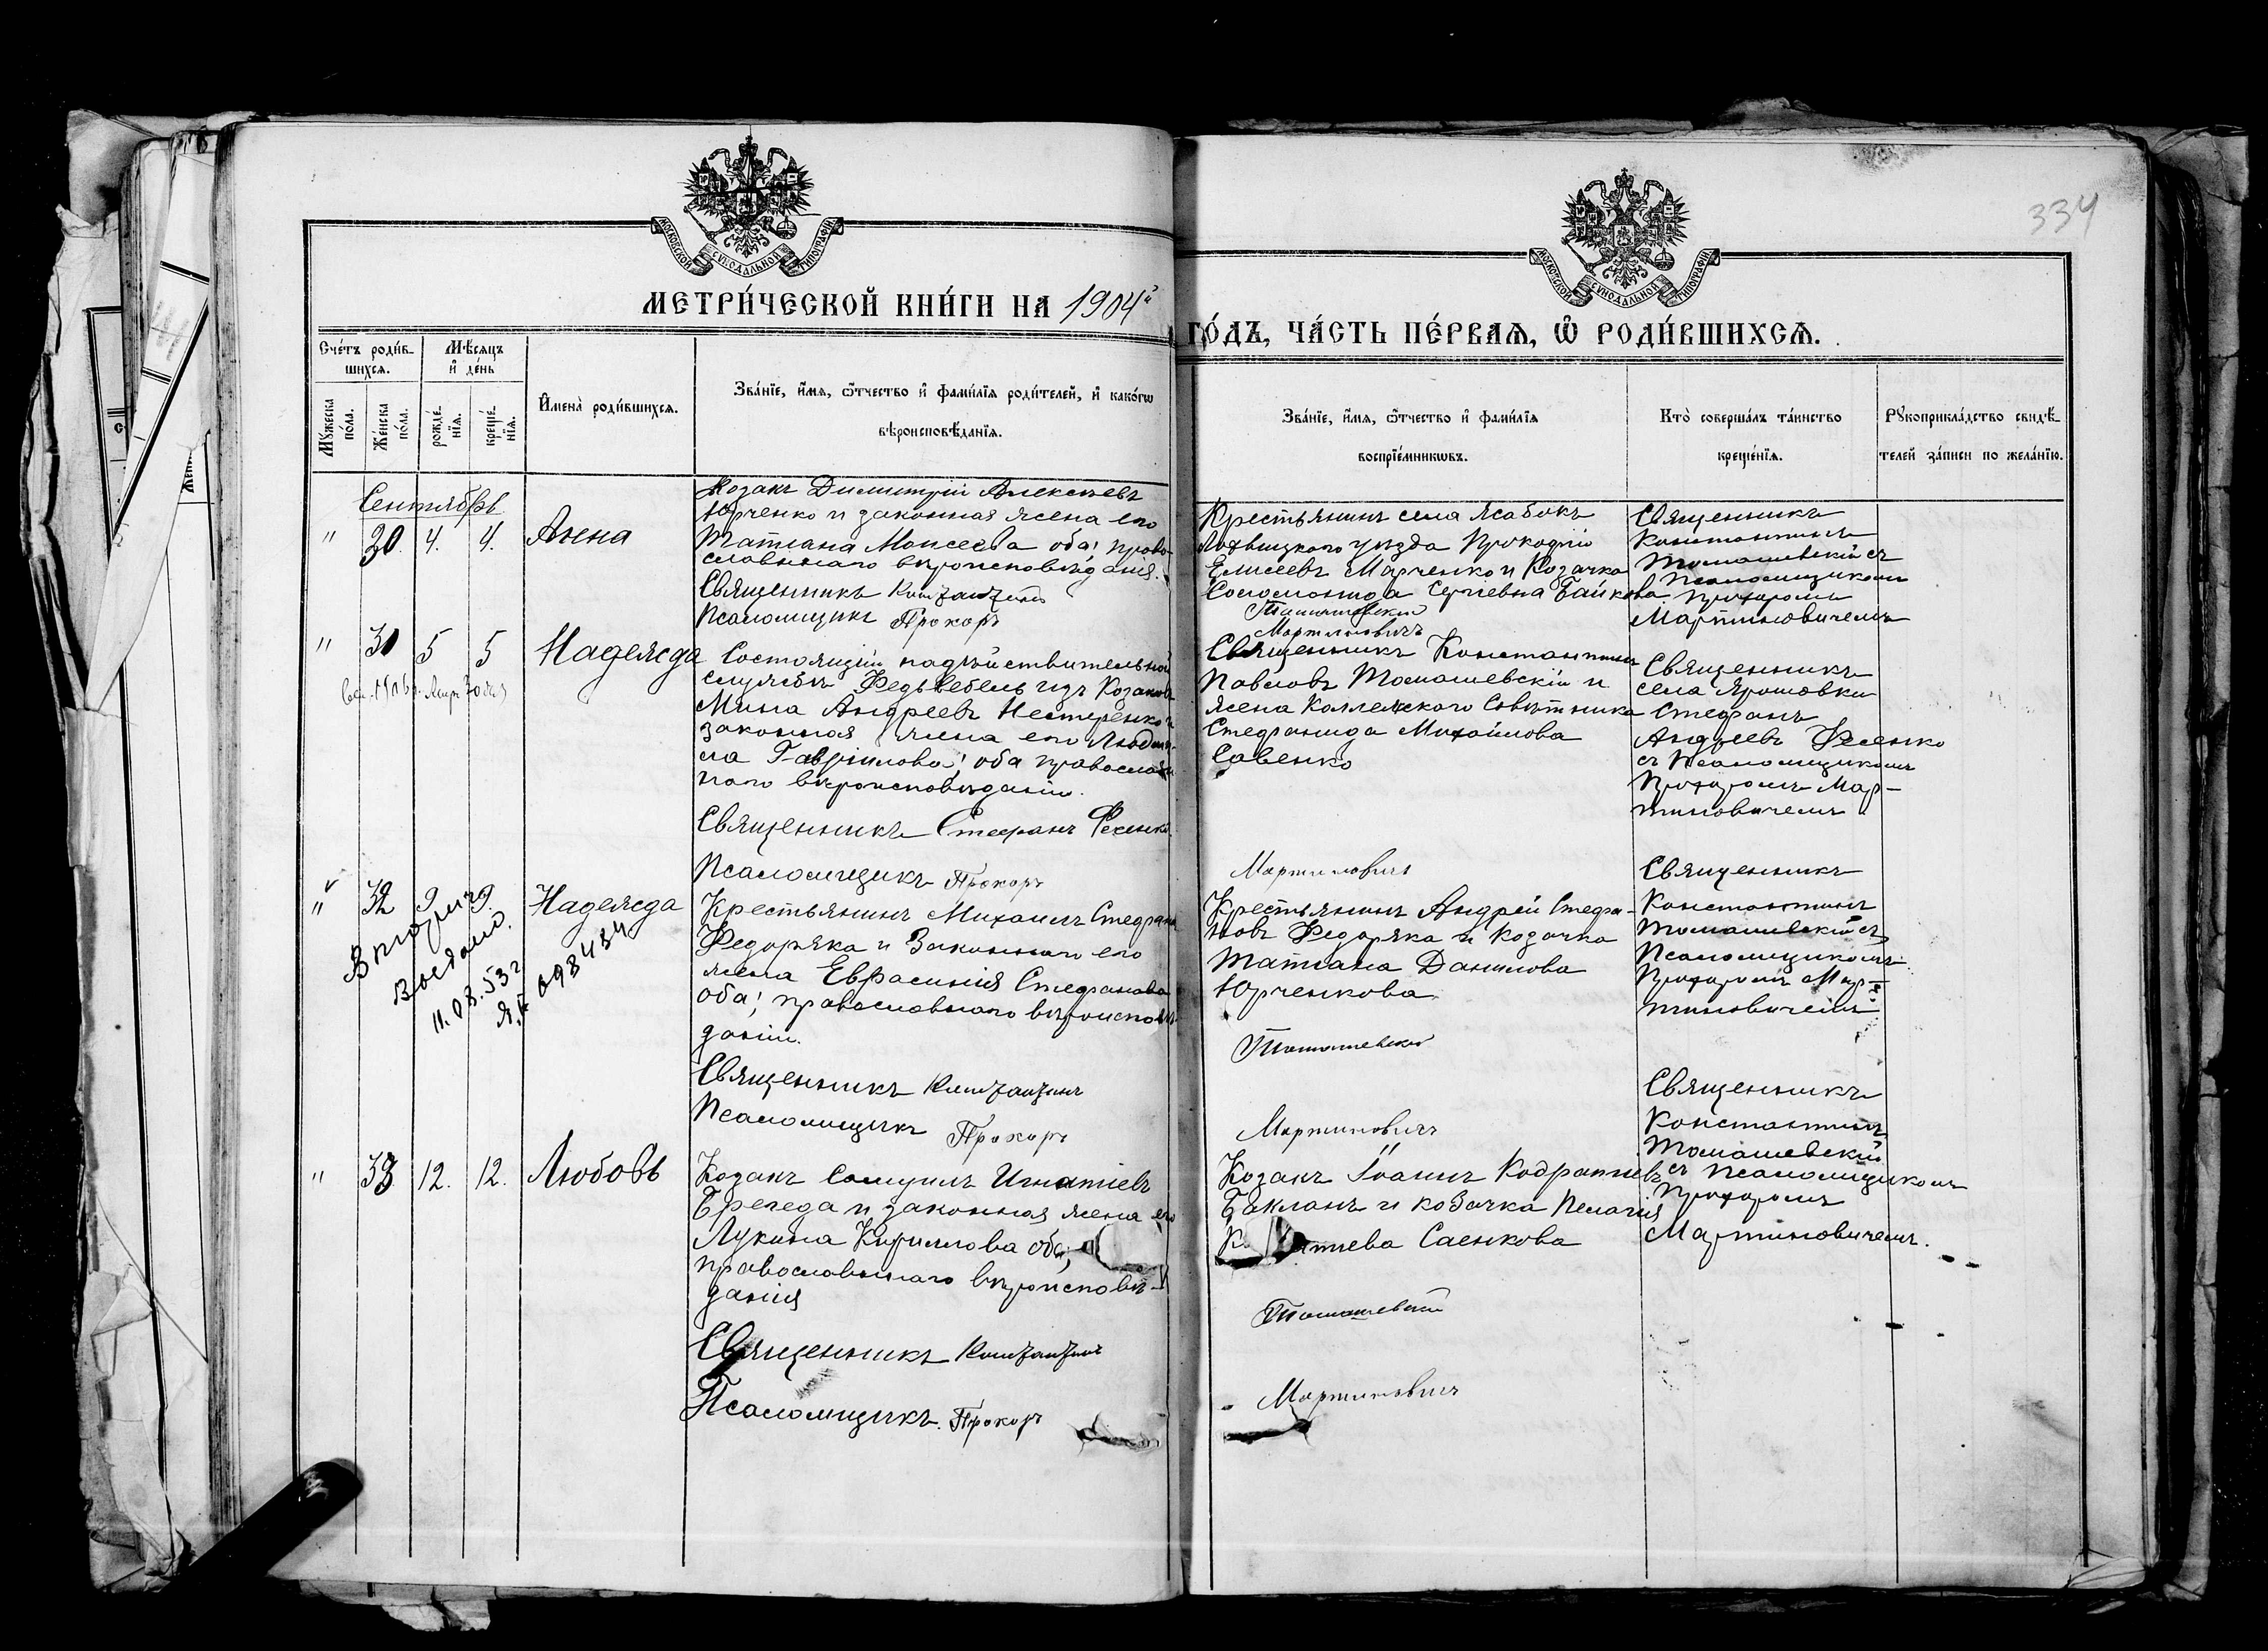 334
МОСКОВСКОЙ СѴНОДАЛЬНОЙ ТИПОГРАФІИ
МОСКОВСКОЙ СѴНОДАЛЬНОЙ ТИПОГРАФІИ
МЕТРИ́ЧЕСКОЙ КНИ́ГИ НА 1904й
ГО́ДЪ, ЧА́СТЬ ПЕ́РВАѦ, Ѡ РОДИ́ВШИХСѦ.
Сче́тъ роди́в-
шихсѧ.
Мѣ́сѧцъ
и де́нь
Мꙋ́жеска
по́ла.
Же́нска
по́ла.
рожде́-
нїѧ.
креще́-
нїѧ.
И҆мена̀ роди́вшихсѧ.
Зва́нїе, и҆́мѧ, ѻ҆́тчество и҆ фами́лїѧ роди́телей, и҆ како́гѡ
вѣроисповѣ́данїѧ.
Зва́нїе, и҆́мѧ, ѻ҆́тчество и҆ фами́лїѧ
воспрїе́мникѡвъ.
Кто̀ соверша́лъ та́инство
креще́нїѧ.
Рꙋкоприкла́дство свидѣ́-
телей за́писи по жела́нїю.
Сентябрь
" 30. 4. 4. Анна
Козакъ Димитрій Алексѣевъ
Юрченко и законная жена его
Татіана Моисеева оба; право-
славнаго вѣроисповѣданія.
Священникъ Константинъ
Псаломщикъ Прохоръ
Крестьянинъ села Жабокъ
Лохвицкаго уѣзда Прокофій
Елисеевъ Марченко и Козачка
Соломонида Сергіевна Байкова
Томашевскій
Мартиновичъ
Священникъ
Константинъ
Томашевскій съ
Псаломщикомъ
Прохоромъ
Мартиновичемъ
" 31 5 5 Надежда
Состоящій на дѣйствительной
службѣ Федьвебель изъ Козаковъ
Мина Андреевъ Нестеренко и
законная жена его Людми-
ла Гавріилова; оба православ-
наго вѣроисповѣданія.
Священникъ Стефанъ Фесенко
Псаломщикъ Прохоръ
Священникъ Константинъ
Павловъ Томашевскій и
жена Коллежскаго Совѣтника
Стефанида Михайлова
Савенко
Мартиновичъ
Священникъ
села Ярошовки
Стефанъ
Андреевъ Фесенко
съ Псаломщикомъ
Прохоромъ Мар-
тиновичемъ
" 32 9 9. Надежда
Вторич
выдано.
11.08.53 г
ЯБ 098434
Крестьянинъ Михаилъ Стефановъ
Федоряка и Законная его
жена Евфросинія Стефанова
оба; православнаго вѣроисповѣ-
данія.
Священникъ Константинъ
Псаломщикъ Прохоръ
Крестьянинъ Андрей Стефа-
новъ Федоряка и Козачка
Татіана Данилова
Юрченкова
Томашевскій
Мартиновичъ
Священникъ
Константинъ
Томашевскій съ
Псаломщикомъ
Прохоромъ Мар-
тиновичемъ
" 33 12. 12. Любовь
Козакъ Самуилъ Игнатіевъ
Брегеда и законная жена его
Лукина Кириллова оба;
православнаго вѣроисповѣ-
данія
Священникъ Константинъ
Псаломщикъ. Прохоръ
Козакъ Іоаннъ Кодратіевъ
Бакланъ и козачка Пелагія
Саенкова
Томашевскій
Мартиновичъ
Священникъ
Константинъ
Томашевскій
съ Псаломщикомъ
Прохоромъ
Мартиновичемъ.